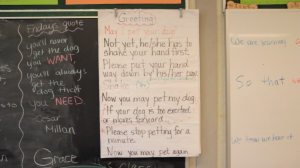 Friday's quote
you'll never
get the dog
you WANT,
you'll always
get the
dog that
you NEED.
Cesar
Millan
Grace
Greeting
May I pet your dog?
Not yet, he/she has to
shake your hand first.
Please put your hand
way down by his/her paw.
Shake
Now you may pet my dog.
If your dog is too excited
or moves forward...
Please stop petting for a
minute.
Now you may pet again.
We are learning
So that